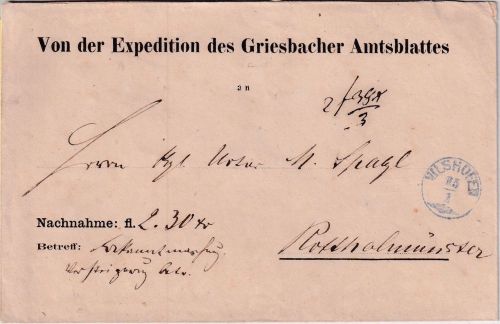 Von der Expedition des Griesbacher Amtsblattes
an
2 f 38x
3
Herrn Kgl. Notar M. Spagl
VILSHOFEN
25
1
Nachnahme: fl. 2. 30 xr
Rotthalmünster
Betreff: Bekanntmachg.
Versteigerung betr.